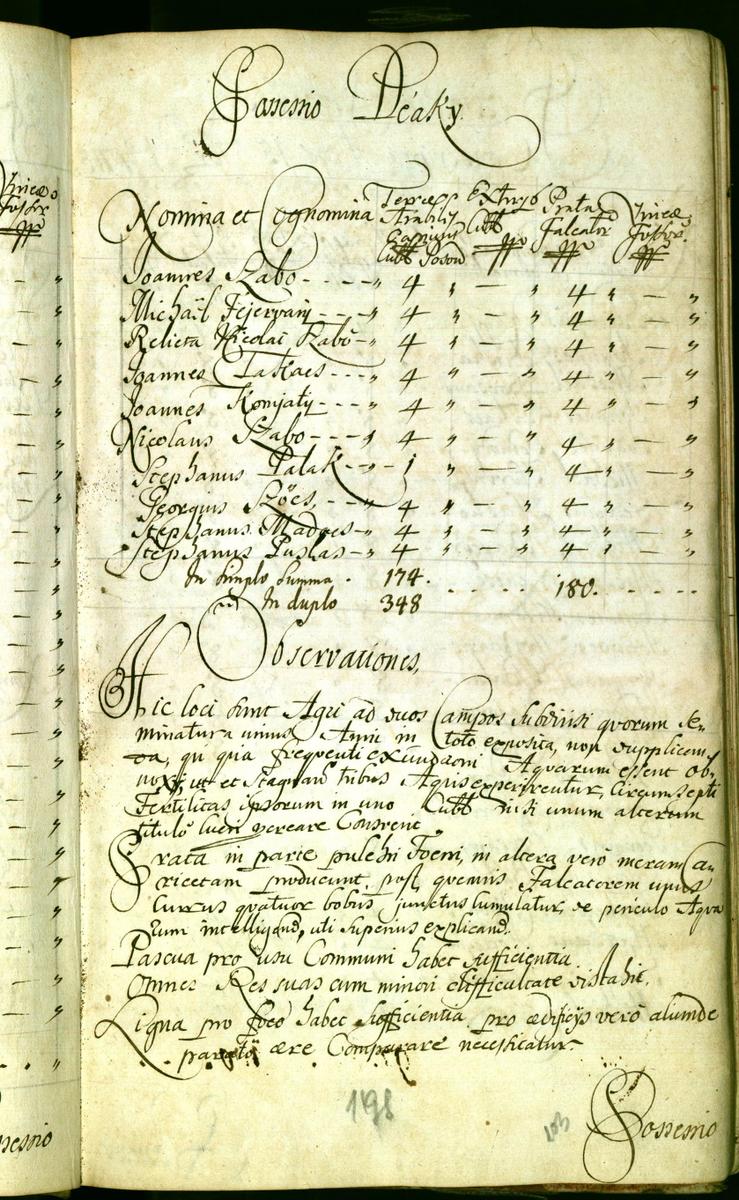 Possessio Déaky
Nomina et Cognomina Terræ Arabiles Capacium Cubb Poson Extirp Cubb Prata Falcator Vineæ Fossor
Joannes Szabo - - - - " 4 " — " 4 " — "
Michaël Féjervárÿ - - - " 4 " — " 4 " — "
Relicta Nicolai Szabó - " 4 " — " 4 " — "
Joannes Takacs - - - " 4 " — " 4 " — "
Joannes Komjatÿ - - - " 4 " — " 4 " — "
Nicolaus Szabo - - - " 4 " — " 4 " — "
Stephanus Palak - " - 1 " — " 4 " — "
Georgius Szöcs, - " 4 " — " 4 " — "
Stephanus Madocs - " 4 " — " 4 " — "
Stephanus Puskas - " 4 " — " 4 " — "
In Simplo Summa . 174. 180.
In duplo 348
Observationes,
Hic loci sunt Agri ad duos Campos Subdivisi qvorum Se-
minatura unius Anni in toto exposita, non supplicem
qui qia freqventi Aqvarum essent Ob-
ut et Stagnan tribus Aqvis experirentur, Circumsepti
Fertilitas ipsorum in uno Cubb nisi unum alterum
titulò lucri Consvevit
Prata in parte pulchri Foeni, in altera verò meram Ca-
ricetam producunt, post qvemvis Falcatorem unus
Currus qvatuor bobus junctus cumulatur, de periculo Aqva
rum intelligend, uti Superius explicand.
Pascua pro usu Communi habet Sufficientia
Omnes Res suas cum minori difficultate distrahit.
Ligna pro foco habet Sufficientia pro ædificÿs verò aliunde
parato ære Comparare necessitatur.
198
103
Possessio
Vineæ
Fossor
ssessio